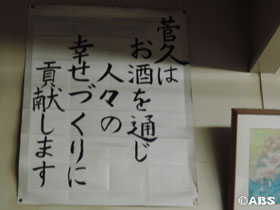 菅久は
お酒を通じ
人々の
幸せづくりに
貢献します
©ABS